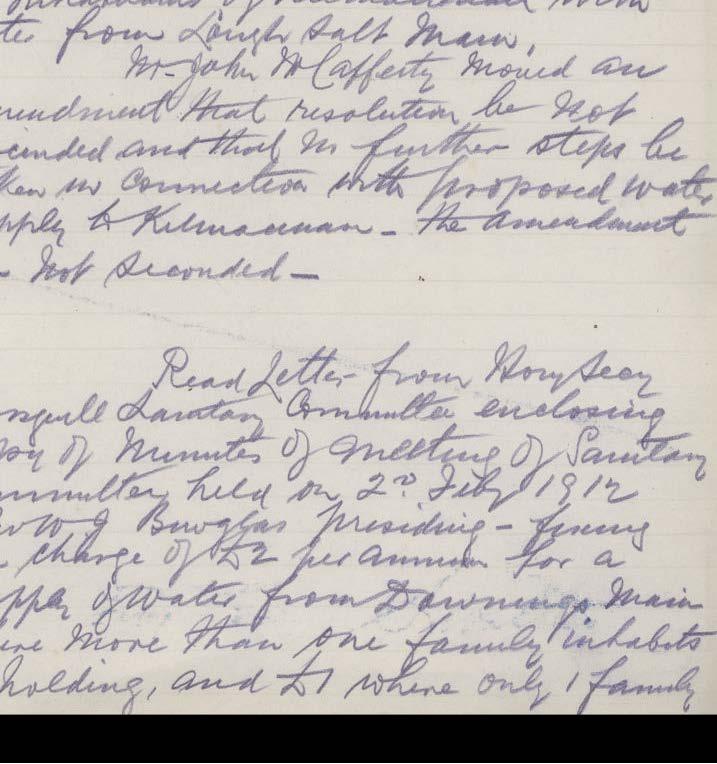 ter from Lough Salt Main.
Mr John McCafferty moved an
mendment that resolution be not
cinded and that no further steps be
ken in connection with proposed water
pply to Kilmacrenan - The amendment
- not seconded -
Read Letter from Hony Secy
osguill Sanitary Committee enclosing
opy of Minutes of Meeting of Sanitary
ommittee held on 2nd Feby 1912
presiding - fixing
charge of £2 per annum for a
pply of water from Downings Main
ere more than one family inhabits
holding, and £1 where only 1 family